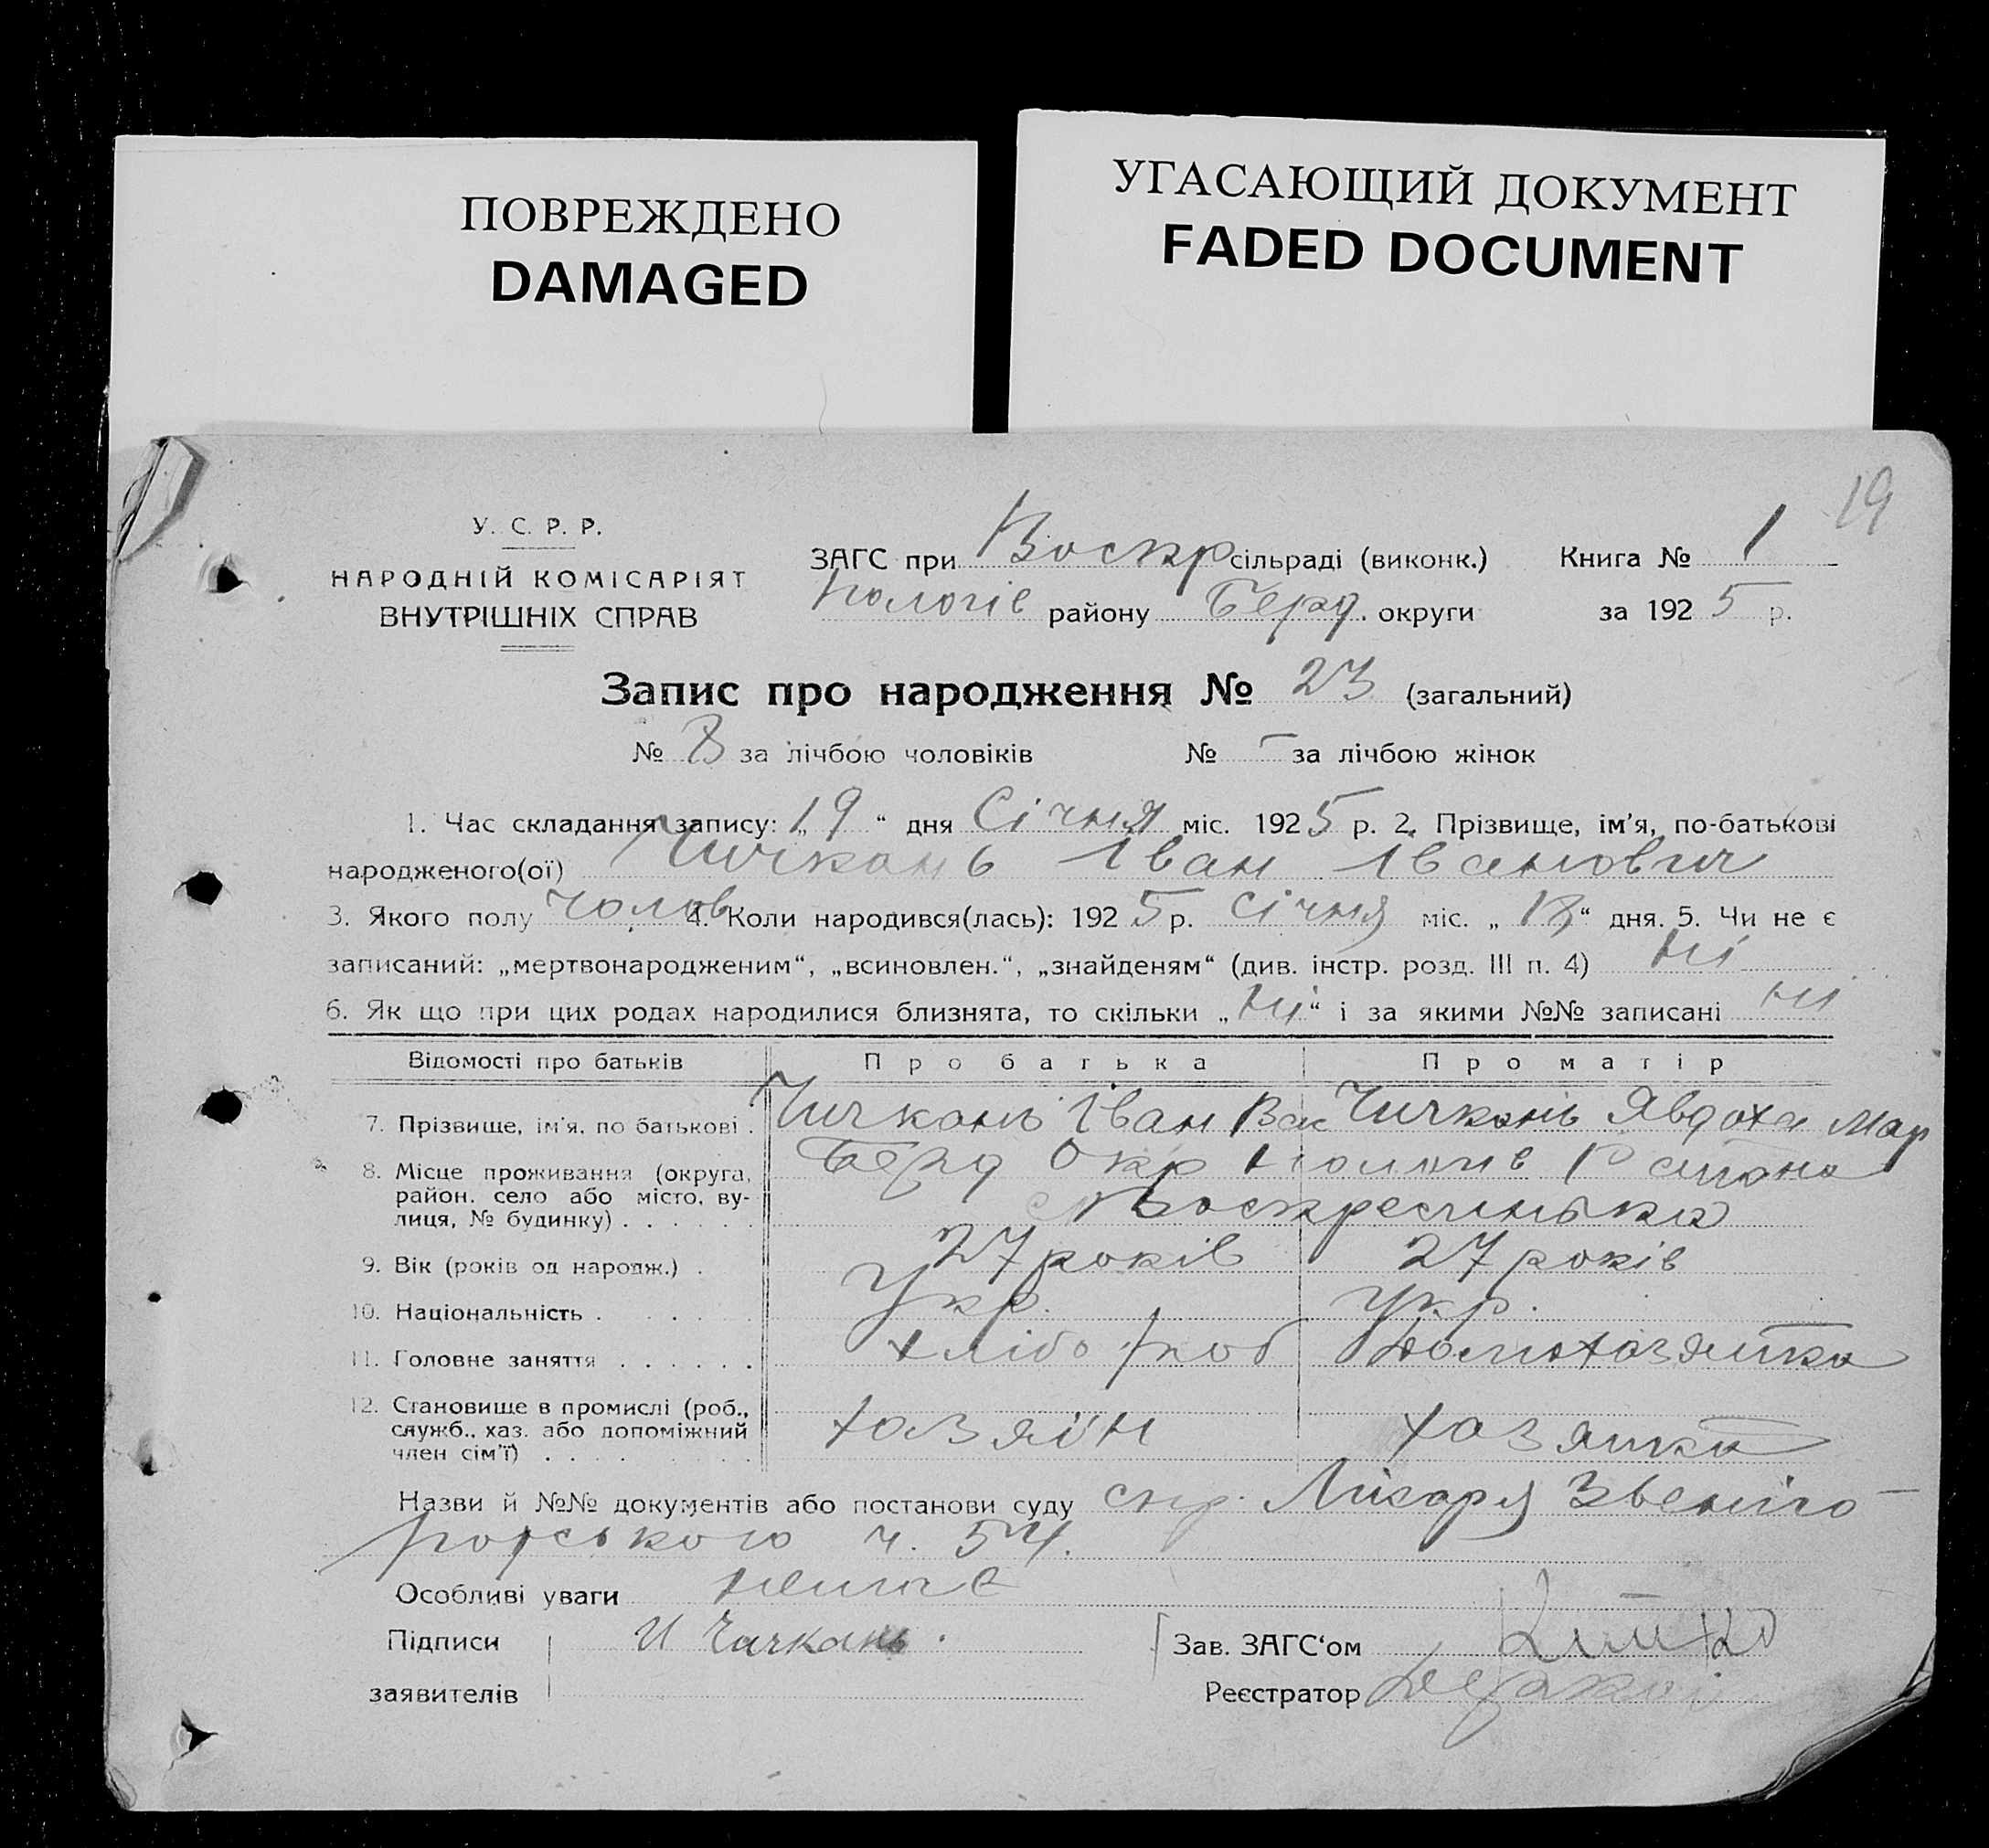 ПОВРЕЖДЕНО
DAMAGED
УГАСАЮЩИЙ ДОКУМЕНТ
FADED DOCUMENT
19
У. С. Р. Р.
НАРОДНІЙ КОМІСАРІЯТ
ВНУТРІШНІХ СПРАВ
ЗАГС при Воскр сільраді (виконк.) Книга № 1
Пологів району Берд. округи за 1925 р.
Запис про народження № 23 (загальний)
№ 8 за лічбою чоловіків № – за лічбою жінок
1. Час складання запису: „19“ дня Січня міс. 1925 р. 2. Прізвище, ім’я, по-батькові
народженого(ої) Чичкань Іван Іванович
3. Якого полу чолов 4. Коли народився(лась): 1925 р. Січня міс. „18“ дня. 5. Чи не є
записаний: „мертвонародженим“, „всиновлен.“, „знайденям“ (див. інстр. розд. III п. 4) ні
6. Як що при цих родах народилися близнята, то скільки „ні“ і за якими №№ записані ні
Відомості про батьків Про батька Про матір
7. Прізвище, ім’я, по батькові . Чичкань Іван Вас Чичкань Явдоха Мар
8. Місце проживання (округа, район, село або місто, вулиця, № будинку) . . . . . . Берд Окр Пологів Району
с Воскресинька
9. Вік (років од народж.) . 27 років 27 років
10. Національність . . . . . Укр. Укр.
11. Головне заняття . . . . . . хлібороб Домохазяйка
12. Становище в промислі (роб.,
служб., хаз. або допоміжний
член сім’ї) . . . . . . . . хазяїн хазяйка
Назви й №№ документів або постанови суду спр. Лікаря Звеніго-
родського ч. 54.
Особливі уваги немає
Підписи И Чичкань.
заявителів
Зав. ЗАГС‘ом
Реєстратор